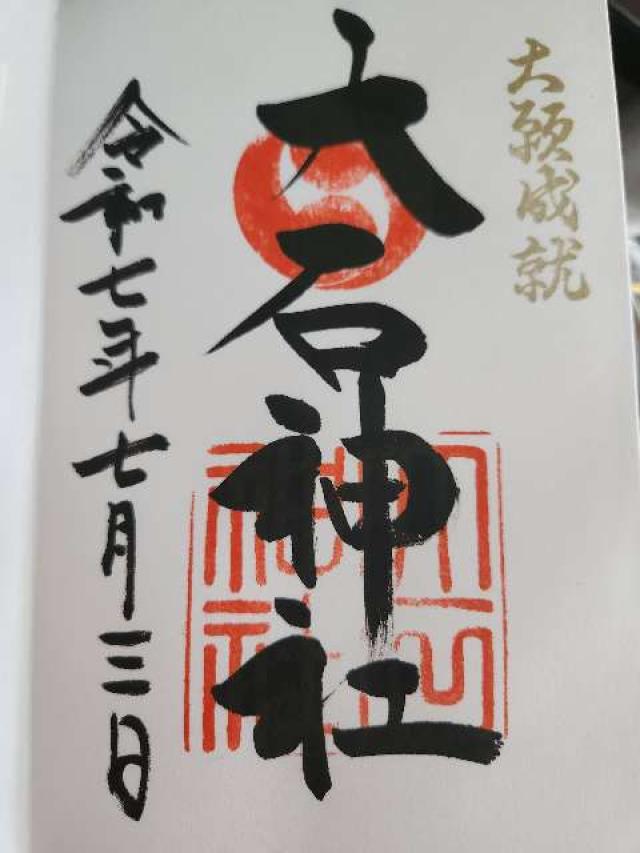 大願成就
大石神社
令和七年七月三日